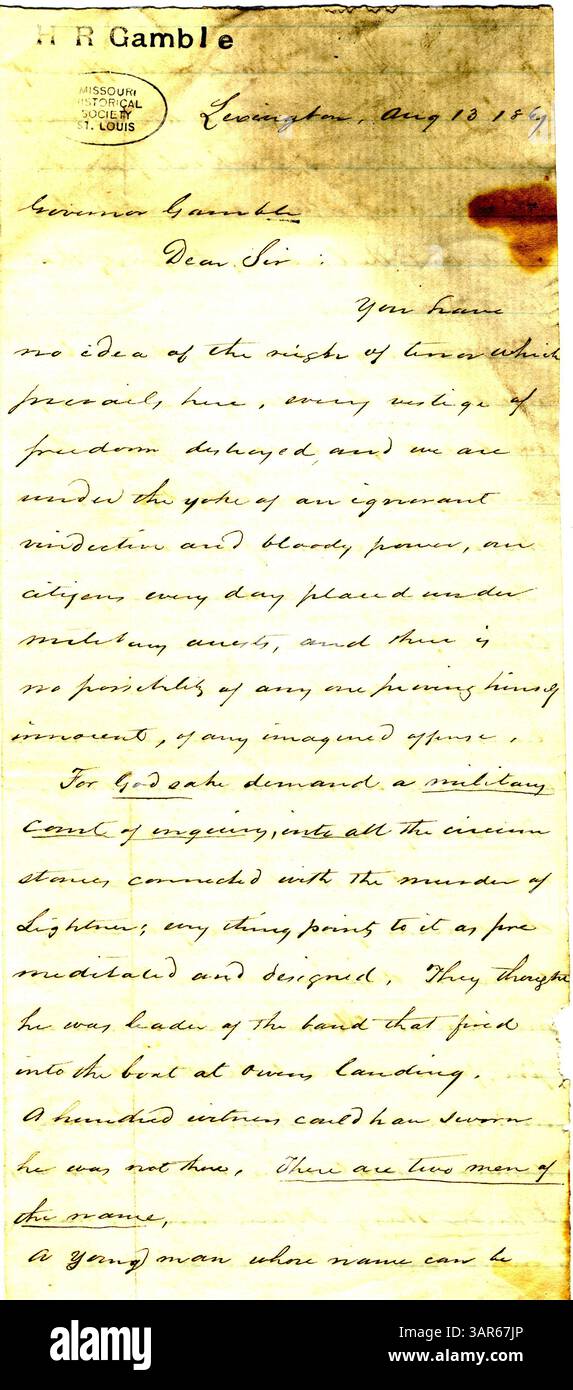 H R Gamble
MISSOURI
HISTORICAL
SOCIETY
ST. LOUIS
Lexington, Aug 13 18
Governor Gamble
Dear Sir :
You have
no idea of the reigh of terror which
prevails here, every vestige of
freedom destroyed, and we are
under the yoke of an ignorant
vindictive and bloody power, our
citizens every day placed under
military arrests, and there is
no possibility of any one proving himself
innocent, of any imagined offense.
For God sake demand a military
court of inquiry, into all the circum
stances connected with the murder of
Lightner; every thing points to it as pre
meditated and designed. They thought
he was leader of the band that fired
into the boat at Owens landing.
A hundred witness could have sworn
he was not there. There are two men of
the name,
A young man whose name can be
alamy
Image ID: 3AR67JP
www.alamy.com